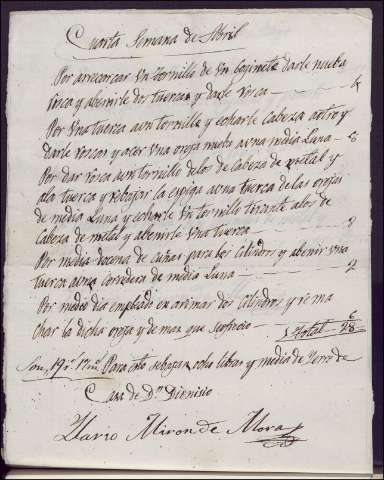 Cuarta Semana de Abril
Por arrecorcar un tornillo de un cojinete darle nueba
rosca y abenirle dos tuercas y darle rosca - 4
Por una tuerca aun tornillo y echarle cabeza aotro y
darle roscas y acer una oreja nueba auna media luna - 8
Por dar rosca aun tornillo delos de cabeza de metal y
ala tuerca y rebajar la espiga auna tuerca de las orejas
de media luna y echarle un tornillo tirante alos de
cabeza de metal y abenirle una tuerca - 8
Por media docena de cuñas para los cilindros y abenir una
tuerca auna corredera de media luna - 2
Por medio dia empleado en arimar dos cilindros y rema
char la dicha oreja y demas que se ofrecio - 6
Total - 28
Son, 19 r. 17 m. Para esto se bajan ocho libras y media de yerro de
Casa de Dn Dionisio
Ylario Miron de Mora